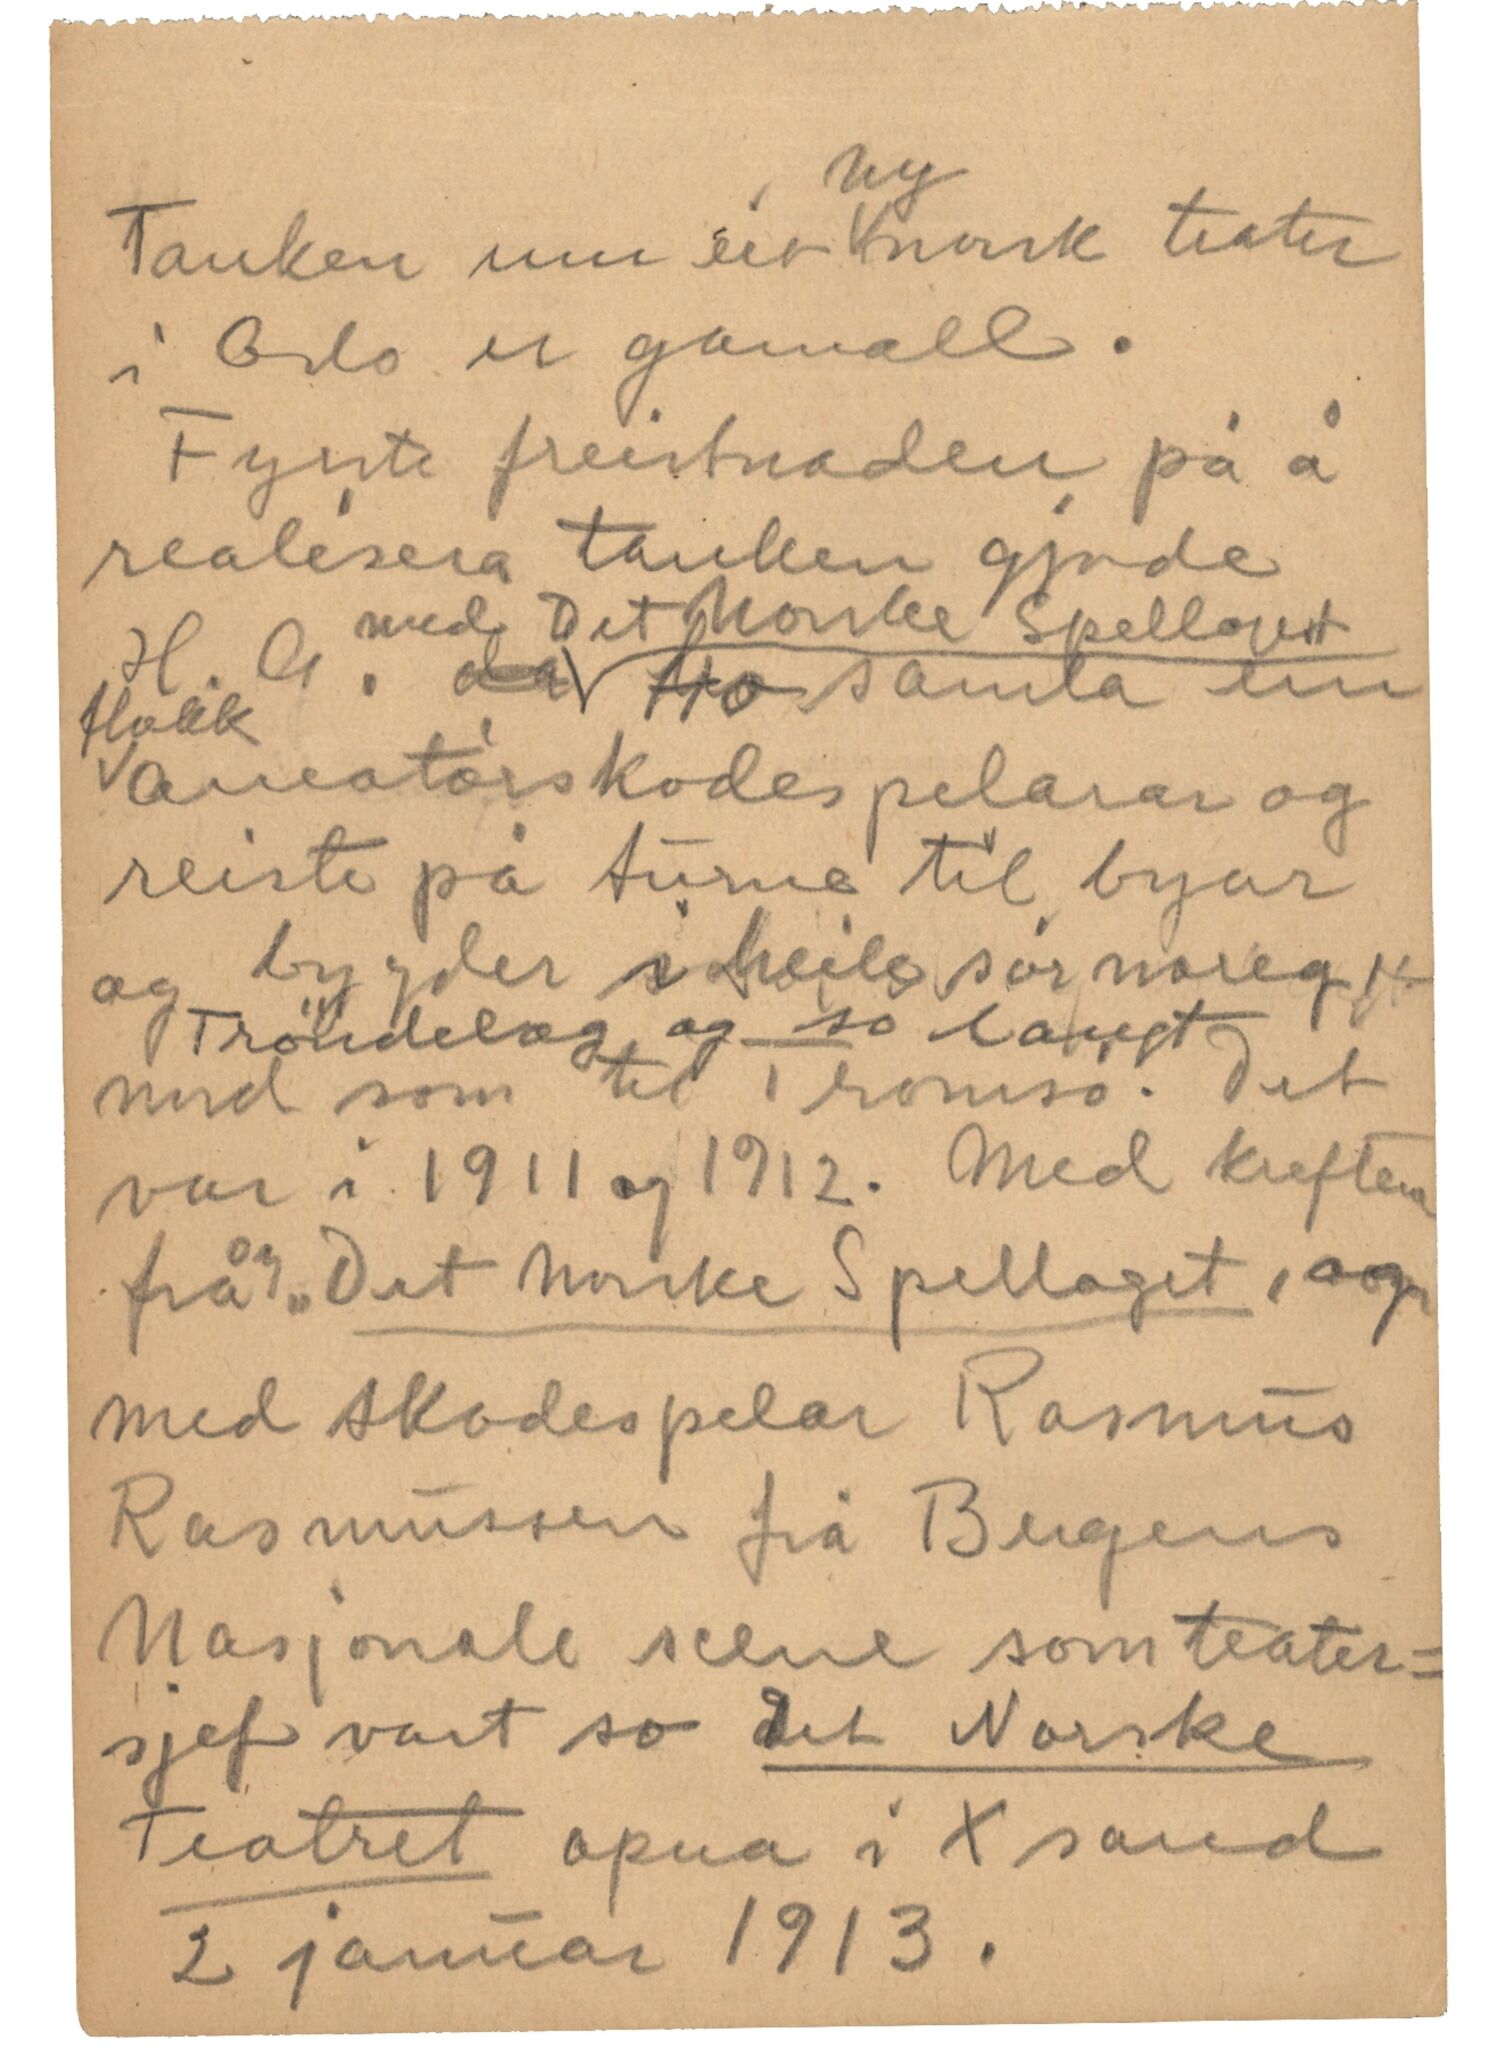 ny
Tanken um eit norsk teater
i Oslo er gamall.
Fyrste freistnaden på å
realisera tanken gjorde
med Det Norske Spellaget
H. A. da Ho samla ein
flokk
amatørskodespelarar og
reiste på turne til byar
og bygder i heile sørnoreg,
Trøndelag og so langt
nord som til Tromsø. Det
var i 1911 og 1912. Med kreftene
frå „Det Norske Spellaget, og
med skodespelar Rasmus
Rasmussen frå Bergens
Nasjonale scene som teater=
sjef vart so det Norske
Teatret opna i Xsand
2 januar 1913.